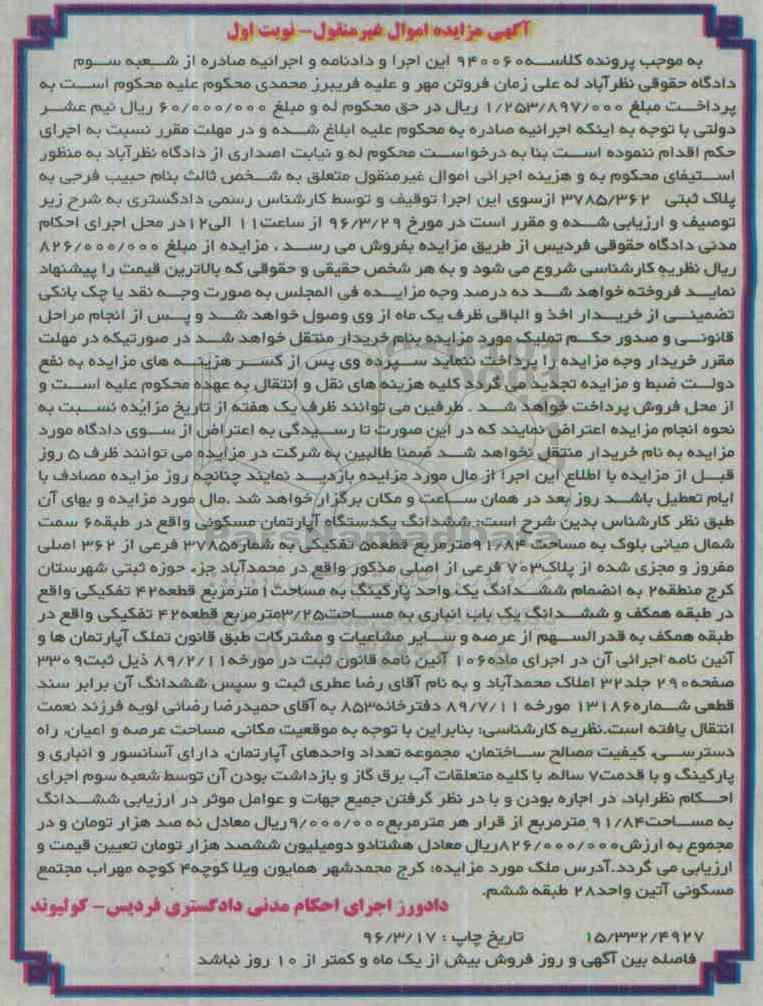 آگهی مزایده اموال غیرمنقول- نوبت اول
به موجب پرونده کلاسه ۹۴۰۰۶۰ این اجرا و دادنامه و اجرائیه صادره از شعبه سوم
دادگاه حقوقی نظرآباد له علی زمان فروتن مهر و علیه فریبرز محمدی محکوم علیه محکوم است به
پرداخت مبلغ ۱/۲۵۳/۸۹۷/۰۰۰ ریال در حق محکوم له و مبلغ ۶۰/۰۰۰/۰۰۰ ریال نیم عشر
دولتی با توجه به اینکه اجرائیه صادره به محکوم علیه ابلاغ شده و در مهلت مقرر نسبت به اجرای
حکم اقدام ننموده است بنا به درخواست محکوم له و نیابت اصداری از دادگاه نظرآباد به منظور
استیفای محکوم به و هزینه اجرائی اموال غیرمنقول متعلق به شخص ثالث بنام حبیب فرجی به
پلاک ثبتی ۳۷۸۵/۳۶۲ ازسوی این اجرا توقیف و توسط کارشناس رسمی دادگستری به شرح زیر
توصیف و ارزیابی شده و مقرر است در مورخ ۹۶/۳/۲۹ از ساعت۱۱ الی۱۲در محل اجرای احکام
مدنی دادگاه حقوقی فردیس از طریق مزایده بفروش می رسد . مزایده از مبلغ ۸۲۶/۰۰۰/۰۰۰
ریال نظریه کارشناسی شروع می شود و به هر شخص حقیقی و حقوقی که بالاترین قیمت را پیشنهاد
نماید فروخته خواهد شد ده درصد وجه مزایده فی المجلس به صورت وجه نقد یا چک بانکی
تضمینی از خریدار اخذ و الباقی ظرف یک ماه از وی وصول خواهد شد و پس از انجام مراحل
قانونی و صدور حکم تملیک مورد مزایده بنام خریدار منتقل خواهد شد در صورتیکه در مهلت
مقرر خریدار وجه مزایده را پرداخت ننماید سپرده وی پس از کسر هزینه های مزایده به نفع
دولت ضبط و مزایده تجدید می گردد کلیه هزینه های نقل و انتقال به عهده محکوم علیه است و
از محل فروش پرداخت خواهد شد . طرفین می توانند ظرف یک هفته از تاریخ مزایده نسبت به
نحوه انجام مزایده اعتراض نمایند که در این صورت تا رسیدگی به اعتراض از سوی دادگاه مورد
مزایده به نام خریدار منتقل نخواهد شد ضمنا طالبین به شرکت در مزایده می توانند ظرف ۵ روز
قبل از مزایده با اطلاع این اجرا از مال مورد مزایده بازدید نمایند چنانچه روز مزایده مصادف با
ایام تعطیل باشد روز بعد در همان ساعت و مکان برگزار خواهد شد .مال مورد مزایده و بهای آن
طبق نظر کارشناس بدین شرح است: ششدانگ یکدستگاه آپارتمان مسکونی واقع در طبقه۶ سمت
شمال میانی بلوک به مساحت ۹۱/۸۴مترمربع قطعه۵ تفکیکی به شماره۳۷۸۵ فرعی از ۳۶۲ اصلی
مفروز و مجزی شده از پلاک۷۰۳ فرعی از اصلی مذکور واقع در محمدآباد جزء حوزه ثبتی شهرستان
کرج منطقه۲ به انضمام ششدانگ یک واحد پارکینگ به مساحت۱مترمربع قطعه۴۲ تفکیکی واقع
در طبقه همکف و ششدانگ یک باب انباری به مساحت۳/۲۵مترمربع قطعه۴۲ تفکیکی واقع در
طبقه همکف به قدرالسهم از عرصه و سایر مشاعیات و مشترکات طبق قانون تملک آپارتمان ها و
آئین نامه اجرائی آن در اجرای ماده۱۰۶ آئین نامه قانون ثبت در مورخه۸۹/۲/۱۱ ذیل ثبت۳۳۰۹
صفحه۲۹۰ جلد۳۲ املاک محمدآباد و به نام آقای رضا عطری ثبت و سپس ششدانگ آن برابر سند
قطعی شماره۱۳۱۸۶ مورخه ۸۹/۷/۱۱ دفترخانه۸۵۳ به آقای حمیدرضا رضائی لویه فرزند نعمت
انتقال یافته است.نظریه کارشناسی: بنابراین با توجه به موقعیت مکانی، مساحت عرصه و اعیان، راه
دسترسی، کیفیت مصالح ساختمان، مجموعه تعداد واحدهای آپارتمان، دارای آسانسور و انباری و
پارکینگ و با قدمت۷ ساله، با کلیه متعلقات آب برق گاز و بازداشت بودن آن توسط شعبه سوم اجرای
احکام نظرآباد، در اجاره بودن و با در نظر گرفتن جمیع جهات و عوامل موثر در ارزیابی ششدانگ
به مساحت۹۱/۸۴ مترمربع از قرار هر مترمربع۹/۰۰۰/۰۰۰ریال معادل نه صد هزار تومان و در
مجموع به ارزش۸۲۶/۰۰۰/۰۰۰ریال معادل هشتادو دومیلیون ششصد هزار تومان تعیین قیمت و
ارزیابی می گردد.آدرس ملک مورد مزایده: کرج محمدشهر همایون ویلا کوچه۴ کوچه مهراب مجتمع
مسکونی آتین واحد۲۸ طبقه ششم.
دادورز اجرای احکام مدنی دادگستری فردیس- کولیوند
۱۵/۳۳۲/۴۹۲۷ تاریخ چاپ : ۹۶/۳/۱۷
فاصله بین آگهی و روز فروش بیش از یک ماه و کمتر از ۱۰ روز نباشد